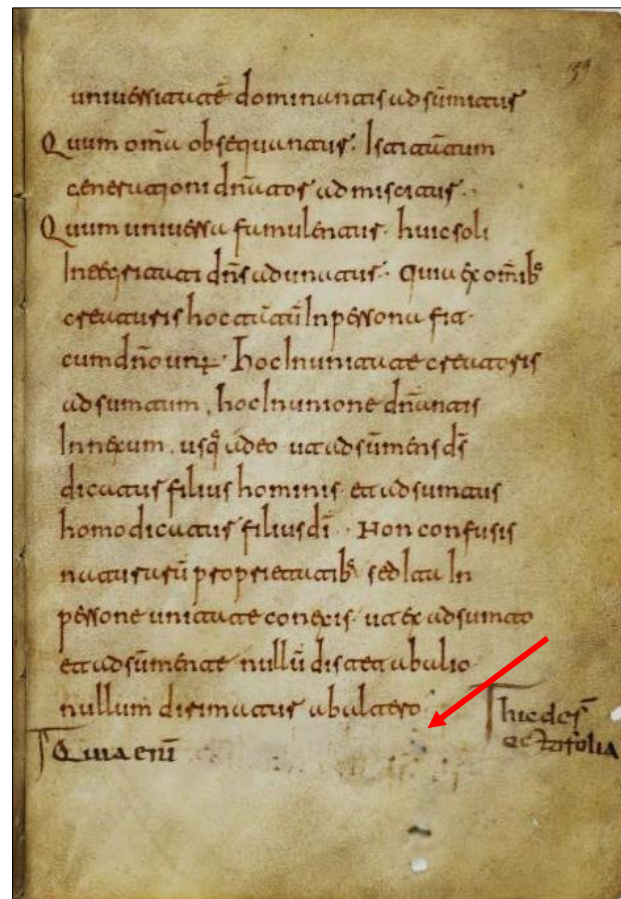 uniuersitatē dominantis adsūmitur
Quum om̄a obsequantur. tātum
generationi dn̄ator admiscitur.
Quum uniuersa famulēntur. huic soli
Integritati dn̄s adunatur. Quia ex om̄ib
creaturis hoc tātū In persona fit
cum dn̄o hoc In unitate creatoris
adsumtum, hoc In unione dn̄antis
Innexum. usq̄ adeo ut adsūmens ds̄
dicatur filius hominis et adsumtus
homo dicatur filius dī. Non confusis
naturarū proprietatib sed Ita In
persone unitate conexis. ut ex adsumto
et adsūmente nullū distet ab alio
nullum dirimatur ab altero
hic des̄
folia
Quia enī